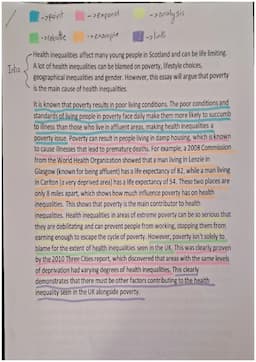 → point → expand → analysis
→ rebuttle → example → link
Intro
Health inequalities affect many young people in Scotland and can be life limiting.
A lot of health inequalities can be blamed on poverty, lifestyle choices,
geographical inequalities and gender. However, this essay will argue that poverty
is the main cause of health inequalities.
It is known that poverty results in poor living conditions. The poor conditions and
standards of living people in poverty face daily make them more likely to succumb
to illness than those who live in affluent areas, making health inequalities a
poverty issue. Poverty can result in people living in damp housing, which is known
to cause illnesses that lead to premature deaths. For example, a 2008 Commission
from the World Health Organization showed that a man living in Lenzie in
Glasgow (known for being affluent) has a life expectancy of 82, while a man living
in Carlton (a very deprived area) has a life expectancy of 54. These two places are
only 8 miles apart, which shows how much influence poverty has on health
inequalities. This shows that poverty is the main contributor to health
inequalities. Health inequalities in areas of extreme poverty can be so serious that
they are debilitating and can prevent people from working, stopping them from
earning enough to escape the cycle of poverty. However, poverty isn't solely to
blame for the extent of health inequalities seen in the UK. This was clearly proven
by the 2010 Three Cities report, which discovered that areas with the same levels
of deprivation had varying degrees of health inequalities. This clearly
demonstrates that there must be other factors contributing to the health
inequality seen in the UK alongside poverty.